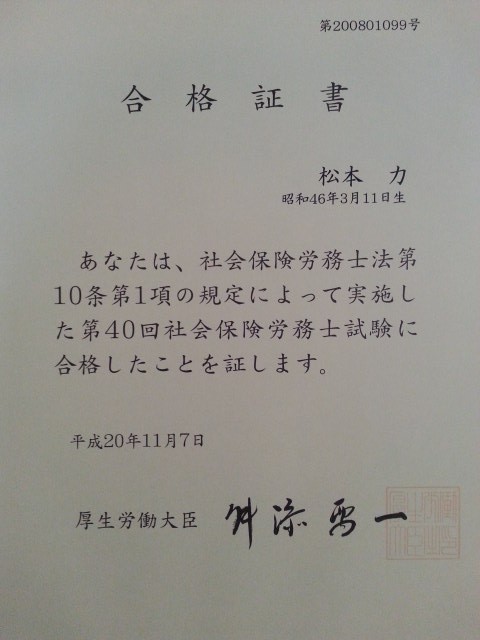 第200801099号
合格証書
松本 力
昭和46年3月11日生
あなたは、社会保険労務士法第
10条第1項の規定によって実施し
た第40回社会保険労務士試験に
合格したことを証します。
平成20年11月7日
厚生労働大臣 舛添要一